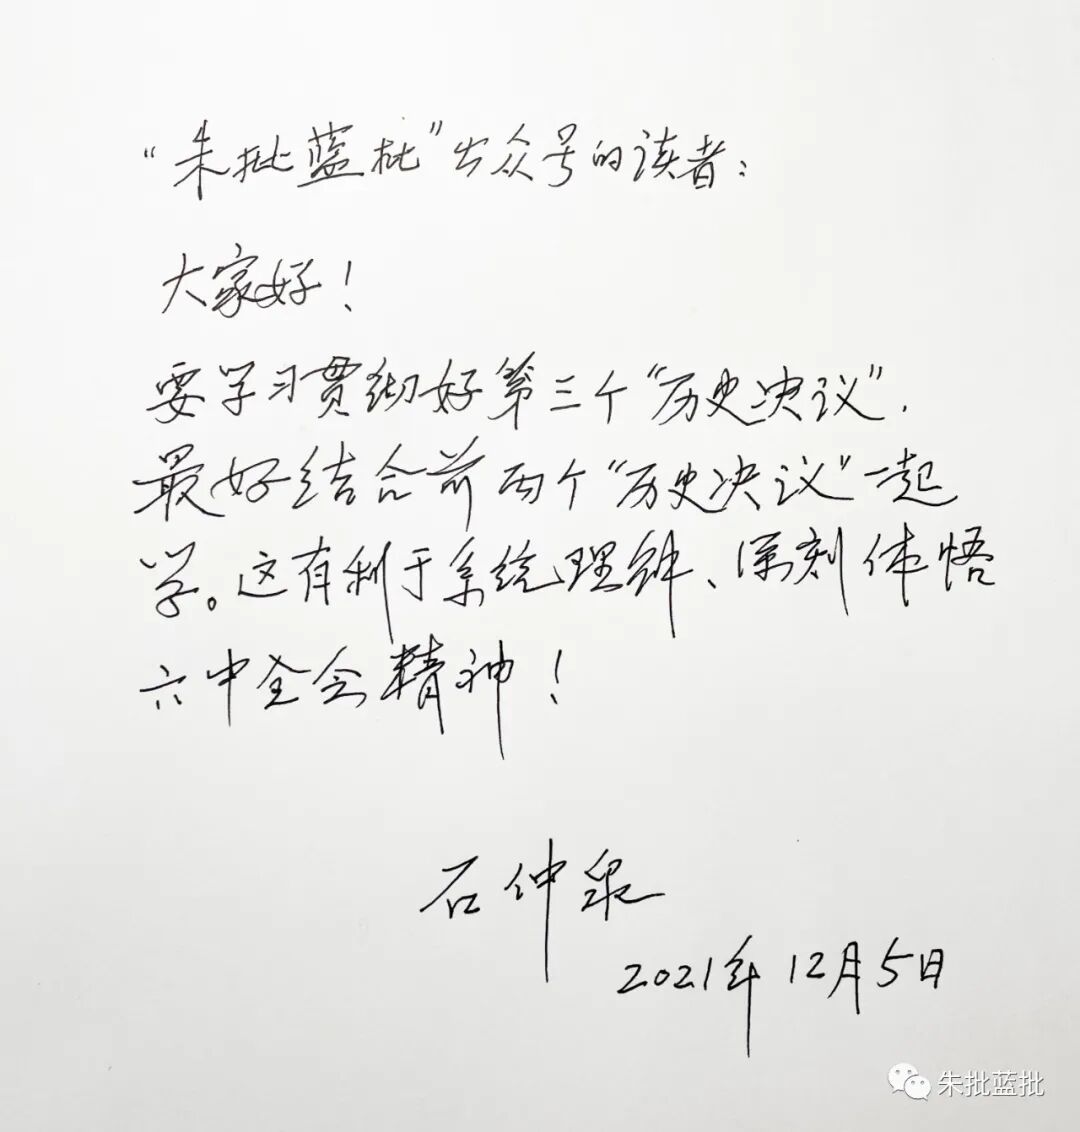 “朱批蓝批”公众号的读者：
大家好！
要学习贯彻好第三个“历史决议”，
最好结合前两个“历史决议”一起
学。这有利于系统理解、深刻体悟
六中全会精神！
石仲泉
2021年12月5日
朱批蓝批